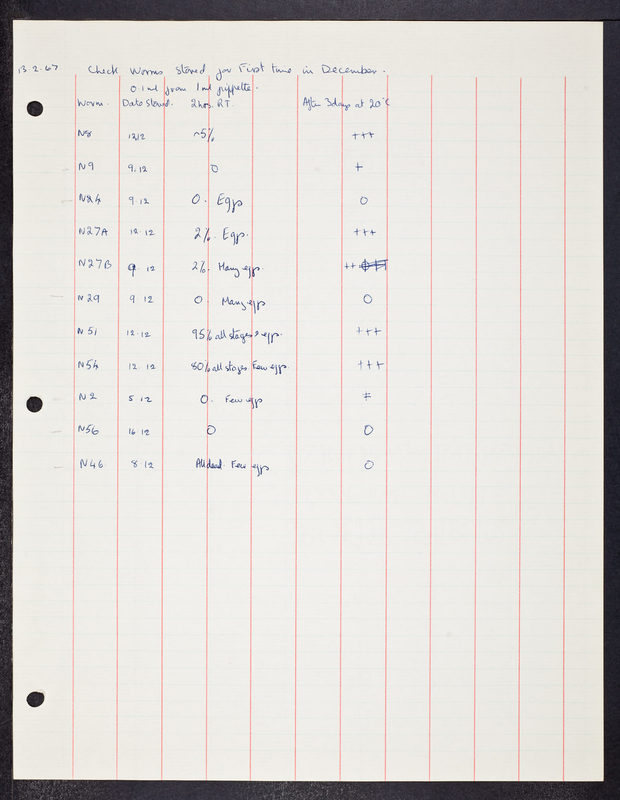 13.2.67 Check Worms stored for First time in December.
0.1 ml from 1 ml pippette.
Worm. Date Stored. 2 hrs. R.T. After 3 days at 20°C
N8 12.12 ~5% +++
N9 9.12 0 +
N24 9.12 0. Eggs 0
N27A 12.12 2%. Eggs. +++
N27B 9 12 2%. Many eggs. ++
N29 9 12 0. Many eggs 0
N51 12.12 95% all stages & eggs. +++
N54 12.12 80% all stages. Few eggs. +++
N2 5 12 0. Few eggs
N56 16 12 0 0
N46 8 12 All dead. Few eggs 0